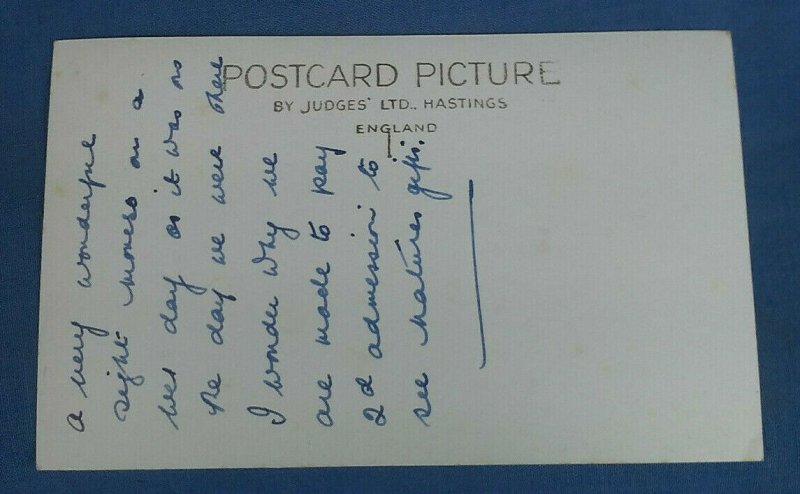 POSTCARD PICTURE
BY JUDGES' LTD., HASTINGS
ENGLAND
a very wonderful
sight on a
wet day as it was on
the day we were there
I wonder why we
are made to pay
2d admission to
see natures gifts.